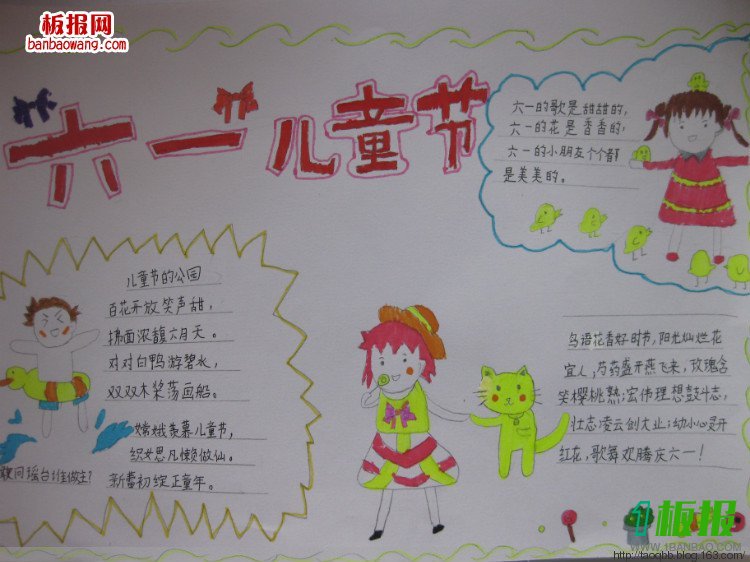 板报网
banbaowang.com
六一儿童节
六一的歌是甜甜的,
六一的花是香香的,
六一的小朋友个个都
是美美的。
儿童节的公园
百花开放笑声甜,
拂面浓馥六月天。
对对白鸭游碧水,
双双木桨荡画船。
嫦娥羡慕儿童节,
织女思凡懒做仙。
敢问瑶台谁做主?
新蕾初绽正童年。
鸟语花香好时节,阳光灿烂花
宜人,芍药盛开燕飞来,玫瑰含
笑樱桃熟;宏伟理想鼓斗志,
壮志凌云创大业;幼小心灵开
红花,歌舞欢腾庆六一!
1板报
WWW.1BANBAO.COM
http://taoqbb.blog.163.com/